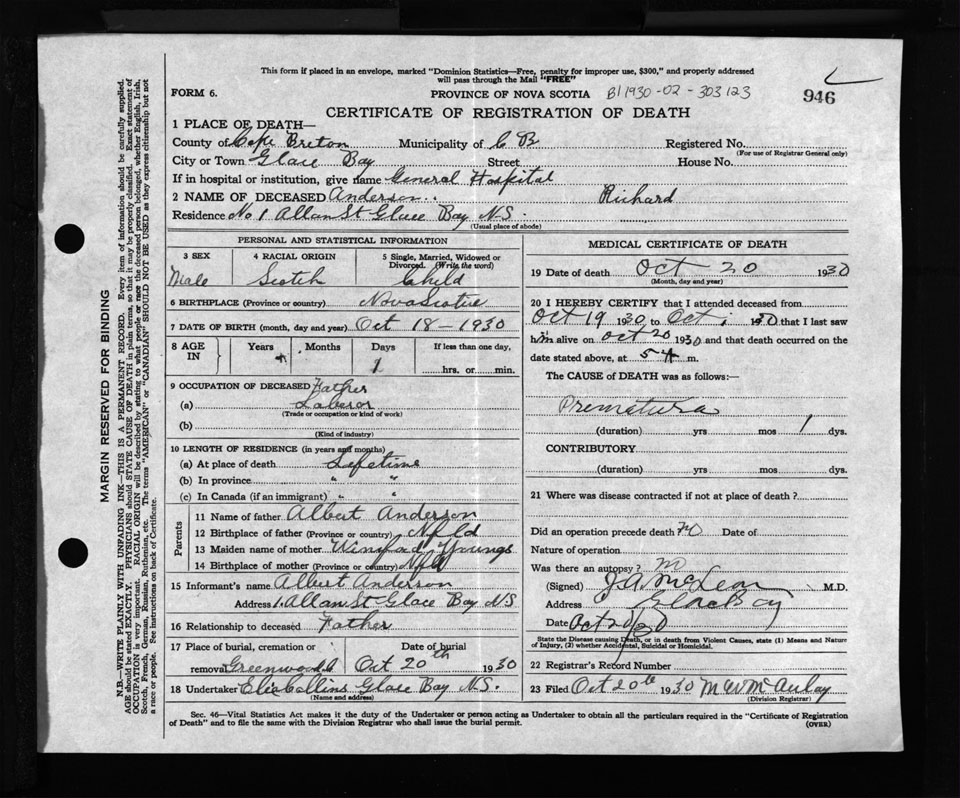 This form if placed in an envelope, marked "Dominion Statistics—Free, penalty for improper use, $300," and properly addressed
will pass through the Mail "FREE"
FORM 6. PROVINCE OF NOVA SCOTIA B11930-02-303123
946
CERTIFICATE OF REGISTRATION OF DEATH
1 PLACE OF DEATH—
County of Cape Breton Municipality of C B Registered No.
(For use of Registrar General only)
City or Town Glace Bay Street House No.
If in hospital or institution, give name General Hospital
2 NAME OF DECEASED Anderson Richard
Residence No 1 Allan St Glace Bay N.S.
(Usual place of abode)
PERSONAL AND STATISTICAL INFORMATION
3 SEX 4 RACIAL ORIGIN 5 Single, Married, Widowed or
Divorced. (Write the word)
Male Scotch Child
6 BIRTHPLACE (Province or country) Nova Scotia
7 DATE OF BIRTH (month, day and year) Oct 18-1930
8 AGE IN Years Months Days If less than one day,
1 hrs. or min.
9 OCCUPATION OF DECEASED Father
(a) Laberor
(Trade or occupation or kind of work)
(b)
(Kind of industry)
10 LENGTH OF RESIDENCE (in years and months)
(a) At place of death Lifetime
(b) In province " "
(c) In Canada (if an immigrant) " "
Parents
11 Name of father Albert Anderson
12 Birthplace of father (Province or country) Nfld
13 Maiden name of mother Youngs
14 Birthplace of mother (Province or country) Nfld
15 Informant's name Albert Anderson
Address 1. Allan St Glace Bay NS
16 Relationship to deceased Father
17 Place of burial, cremation or Date of burial
removal Greenwood Oct 20th 1930
18 Undertaker Collins Glace Bay N.S.
(Name and address)
MEDICAL CERTIFICATE OF DEATH
19 Date of death Oct 20 1930
(Month, day and year)
20 I HEREBY CERTIFY that I attended deceased from
Oct 19 1930 to Oct 1930 that I last saw
him alive on Oct 20 1930 and that death occurred on the
date stated above, at 5 A m.
The CAUSE of DEATH was as follows:—
Prematura
(duration) yrs mos 1 dys.
CONTRIBUTORY
(duration) yrs. mos. dys.
21 Where was disease contracted if not at place of death?
Did an operation precede death? No Date of
Nature of operation
Was there an autopsy? no
(Signed) J.A. McLean M.D.
Address Glace Bay
Date Oct 20/30
State the Disease causing Death, or in death from Violent Causes, state (1) Means and Nature
of Injury, (2) whether Accidental, Suicidal or Homicidal.
22 Registrar's Record Number
23 Filed Oct 20th 1930 McAulay
(Division Registrar)
Sec. 46—Vital Statistics Act makes it the duty of the Undertaker or person acting as Undertaker to obtain all the particulars required in the "Certificate of Registration
of Death" and to file the same with the Division Registrar who shall issue the burial permit.
(OVER)
MARGIN RESERVED FOR BINDING
N.B.—WRITE PLAINLY WITH UNFADING INK—THIS IS A PERMANENT RECORD. Every item of information should be carefully supplied.
AGE should be stated EXACTLY. PHYSICIANS should STATE CAUSE OF DEATH in plain terms, so that it may be properly classified. Exact statement of
OCCUPATION is very important. RACIAL ORIGIN will be described by stating to what people or race the deceased person belonged, whether English, Irish,
Scotch, French, German, Russian, Ruthenian, etc. The terms "AMERICAN" or "CANADIAN" SHOULD NOT BE USED as they express citizenship but not
a race or people. See instructions on back of Certificate.